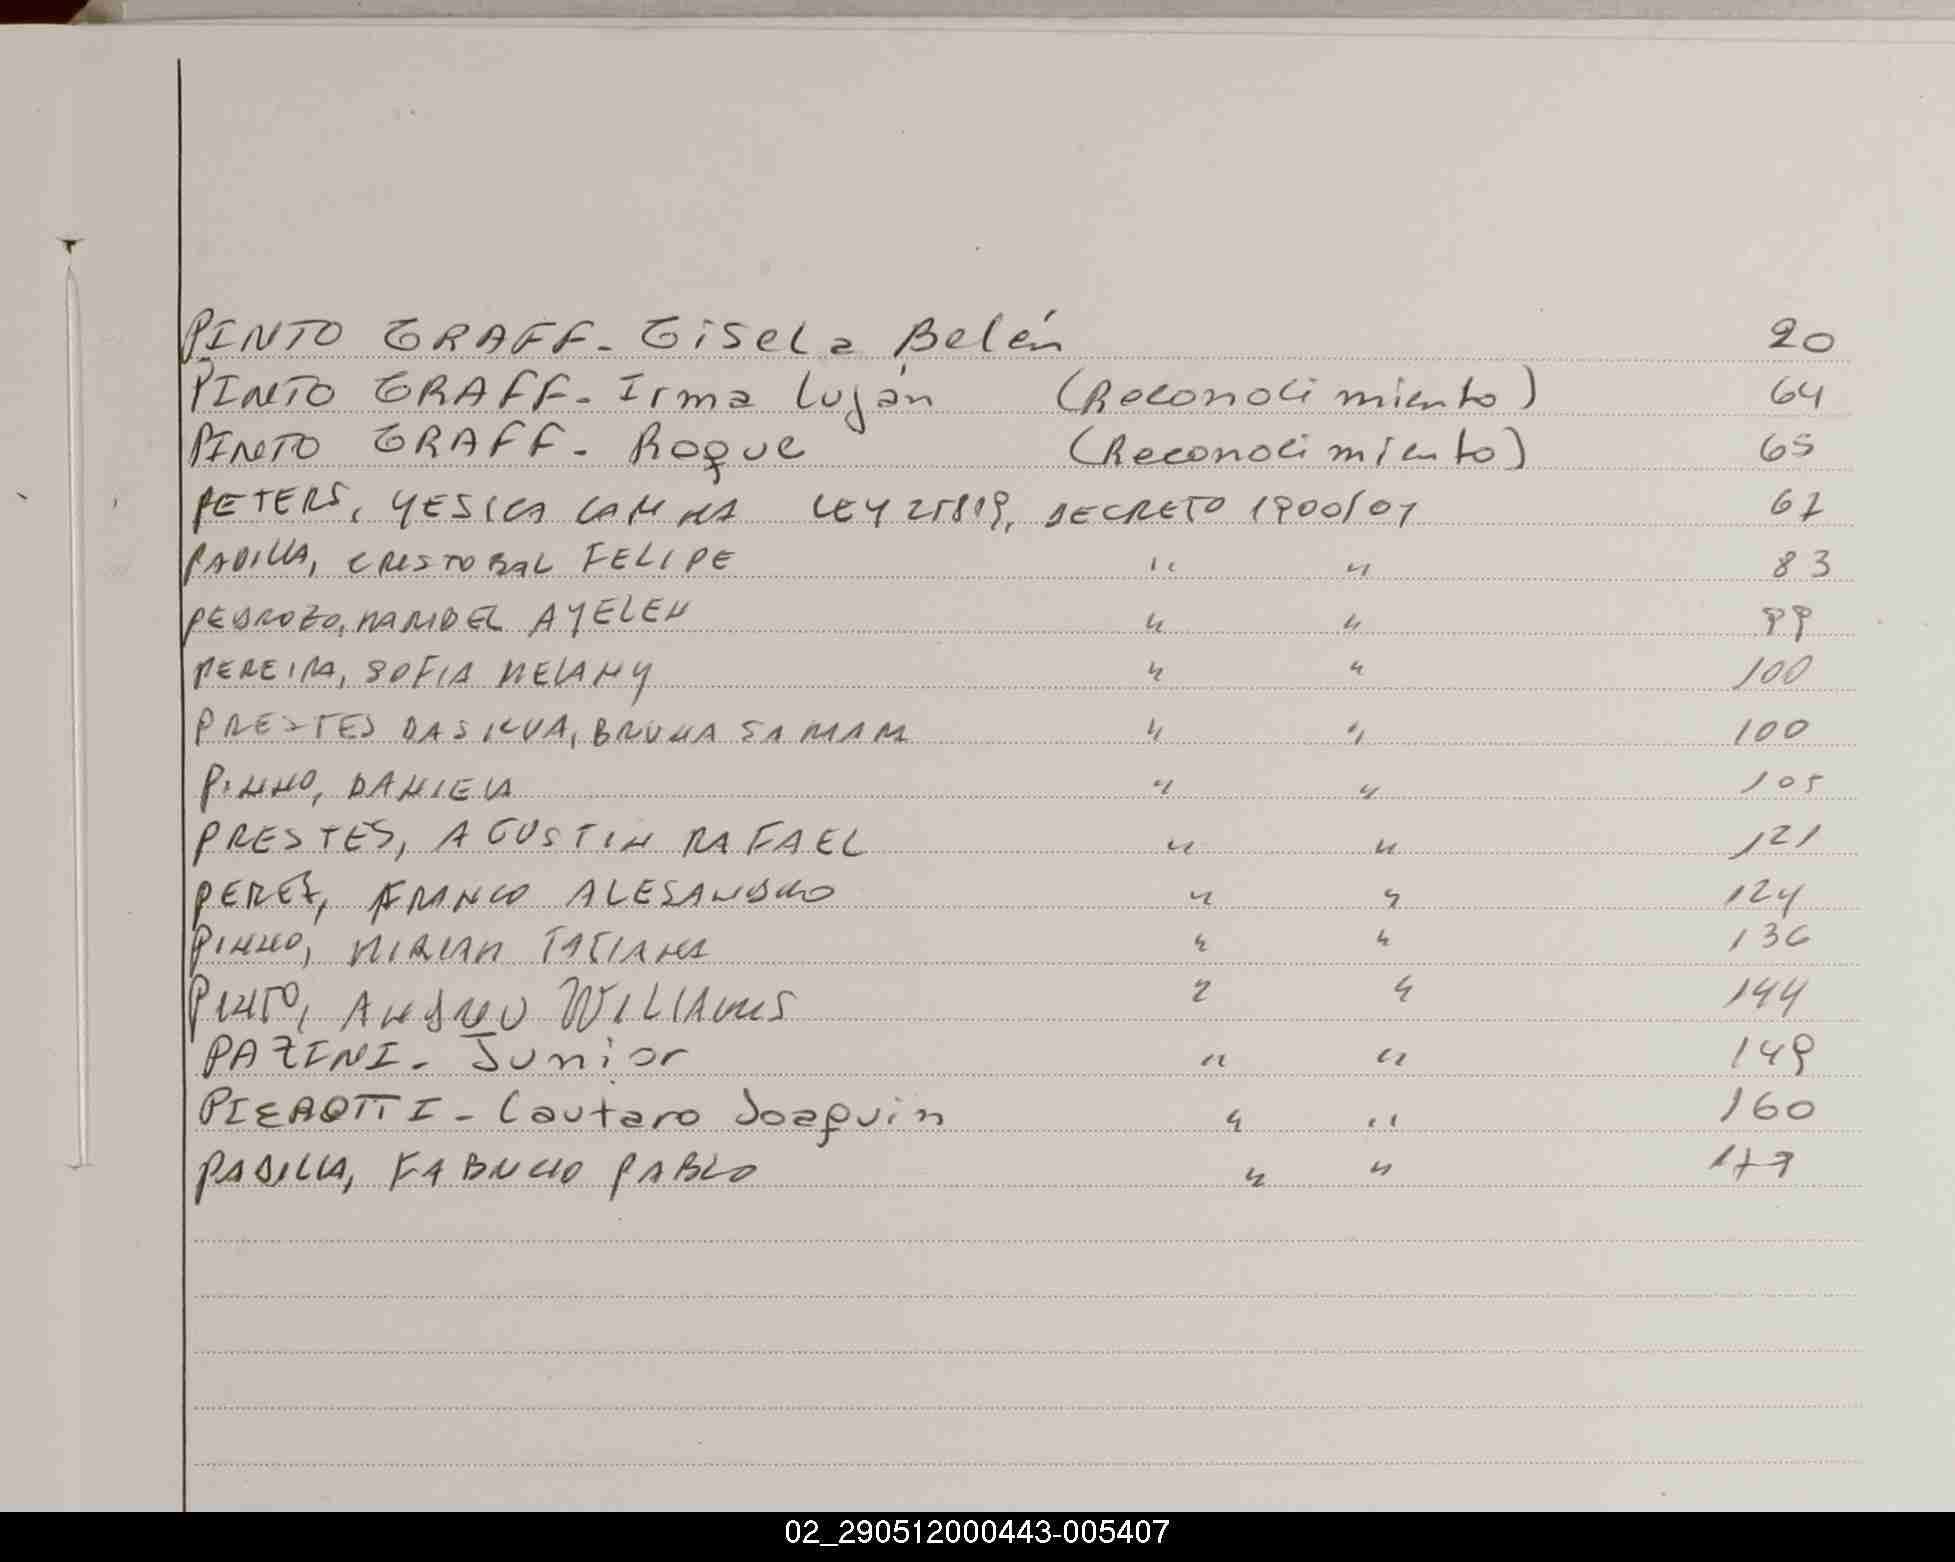 PINTO GRAFF - Gisela Belén 20
PINTO GRAFF - Irma Luján (Reconocimiento) 64
PINTO GRAFF - Roque (Reconocimiento) 65
PETERS, YESICA LEY 25819, DECRETO 1900/07 67
PADILLA, CRISTOBAL FELIPE " " 83
PEDROZO, MARIBEL AYELEN " " 99
PEREIRA, SOFIA MELANY " " 100
PRESTES DA SILVA, BRUNA " " 100
PINNO, DANIELA " " 105
PRESTES, AGUSTIN RAFAEL " " 121
PEREZ, FRANCO ALESANDRO " " 124
PINNO, MIRIAN TATIANA " " 136
PINTO, WILLIAMS " " 144
PAZINI - Junior " " 149
PIEROTTI - Lautaro Joaquin " " 160
PADILLA, FABRICIO PABLO " " 177
02_290512000443-005407